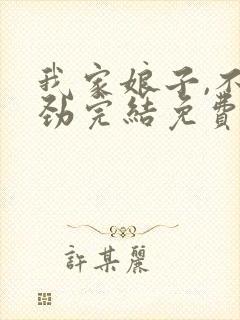 我家娘子,不
劲完結免費
許某麗